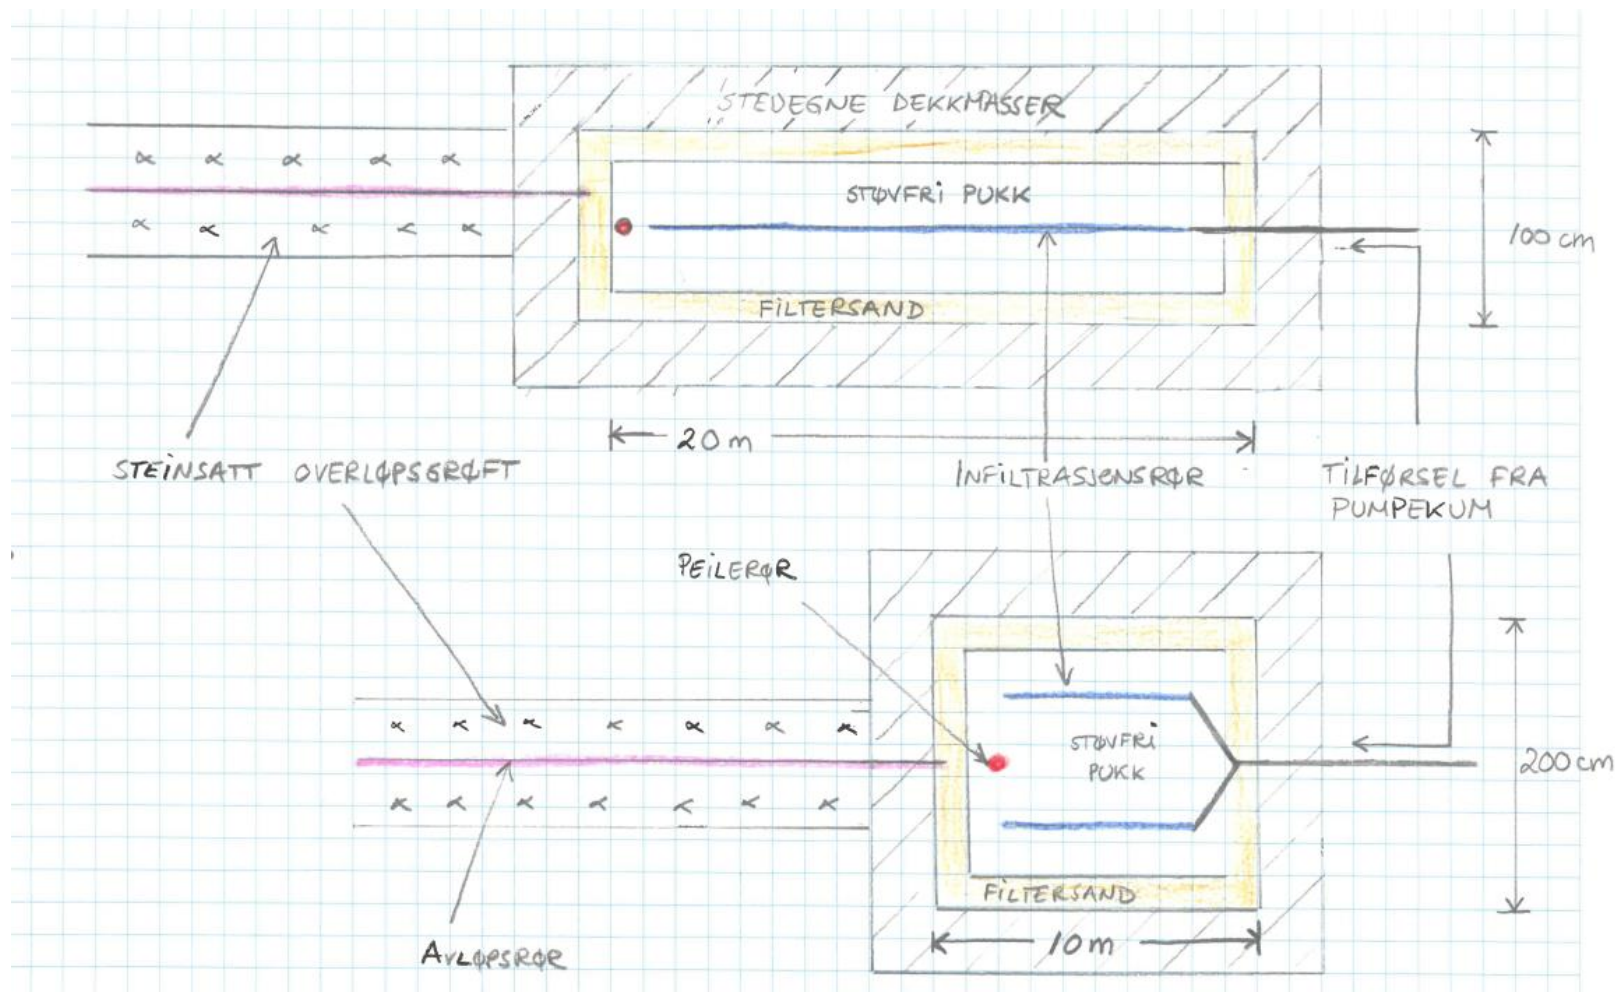 STEDEGNE DEKKMASSER
STØVFRI PUKK
FILTERSAND
100 cm
20 m
STEINSATT OVERLØPSGRØFT
INFILTRASJONSRØR
TILFØRSEL FRA
PUMPEKUM
PEILERØR
STØVFRI
PUKK
200 cm
FILTERSAND
10 m
AVLØPSRØR